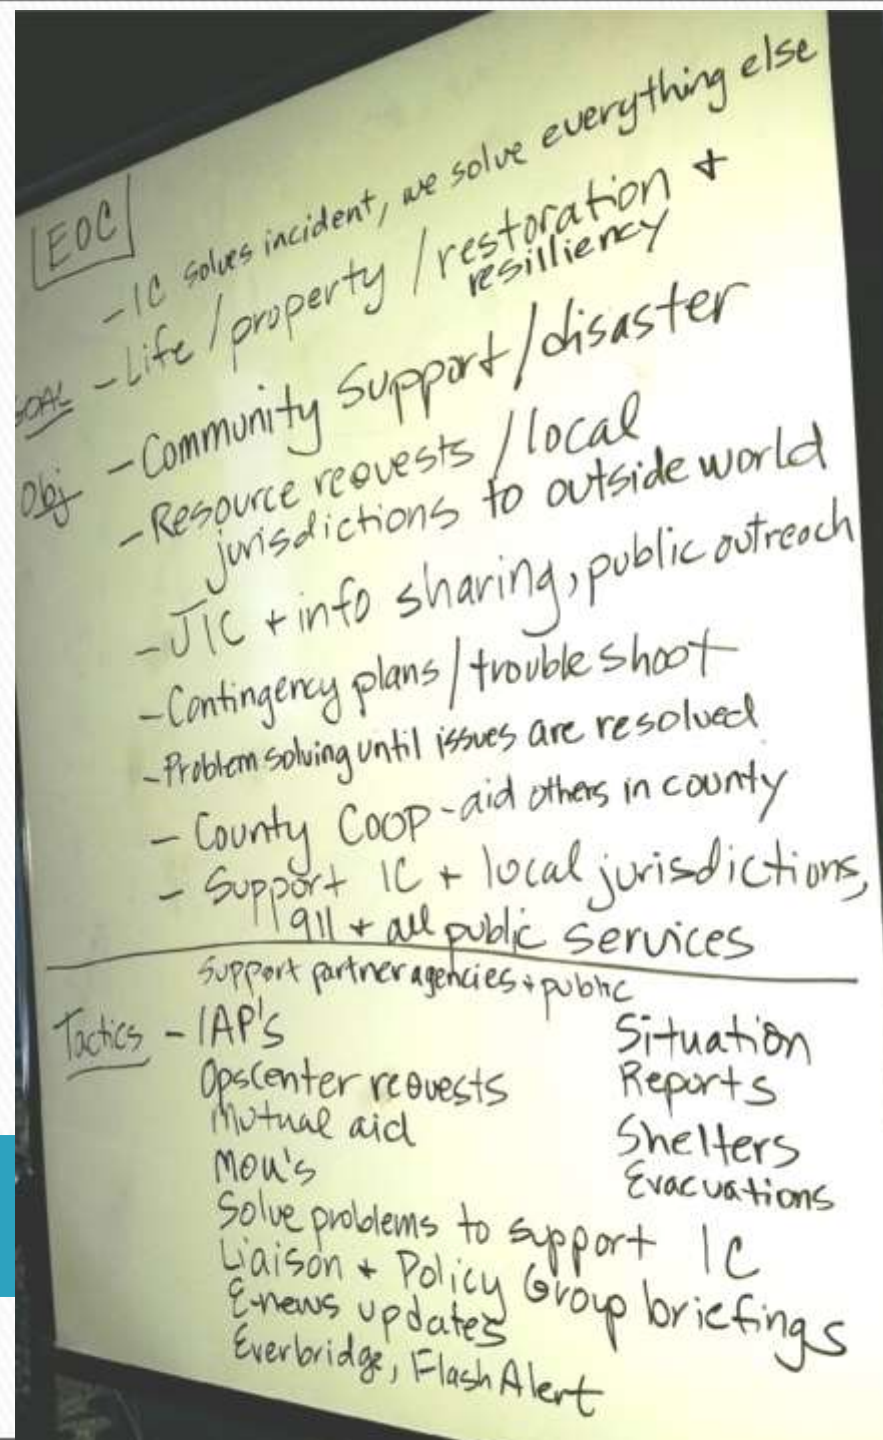 EOC
- IC solves incident, we solve everything else
GOAL - Life / property / restoration +
resilliency
Obj - Community Support / disaster
- Resource requests / local
jurisdictions to outside world
- JIC + info sharing, public outreach
- Contingency plans / trouble shoot
- Problem solving until issues are resolved
- County Coop - aid others in county
- Support IC + local jurisdictions,
911 + all public services
Support partner agencies + public
Tactics - IAP's
Opscenter requests
Mutual aid
MOU's
Situation
Reports
Shelters
Evacuations
Solve problems to support IC
Liaison + Policy Group briefings
E-news updates
Everbridge, FlashAlert